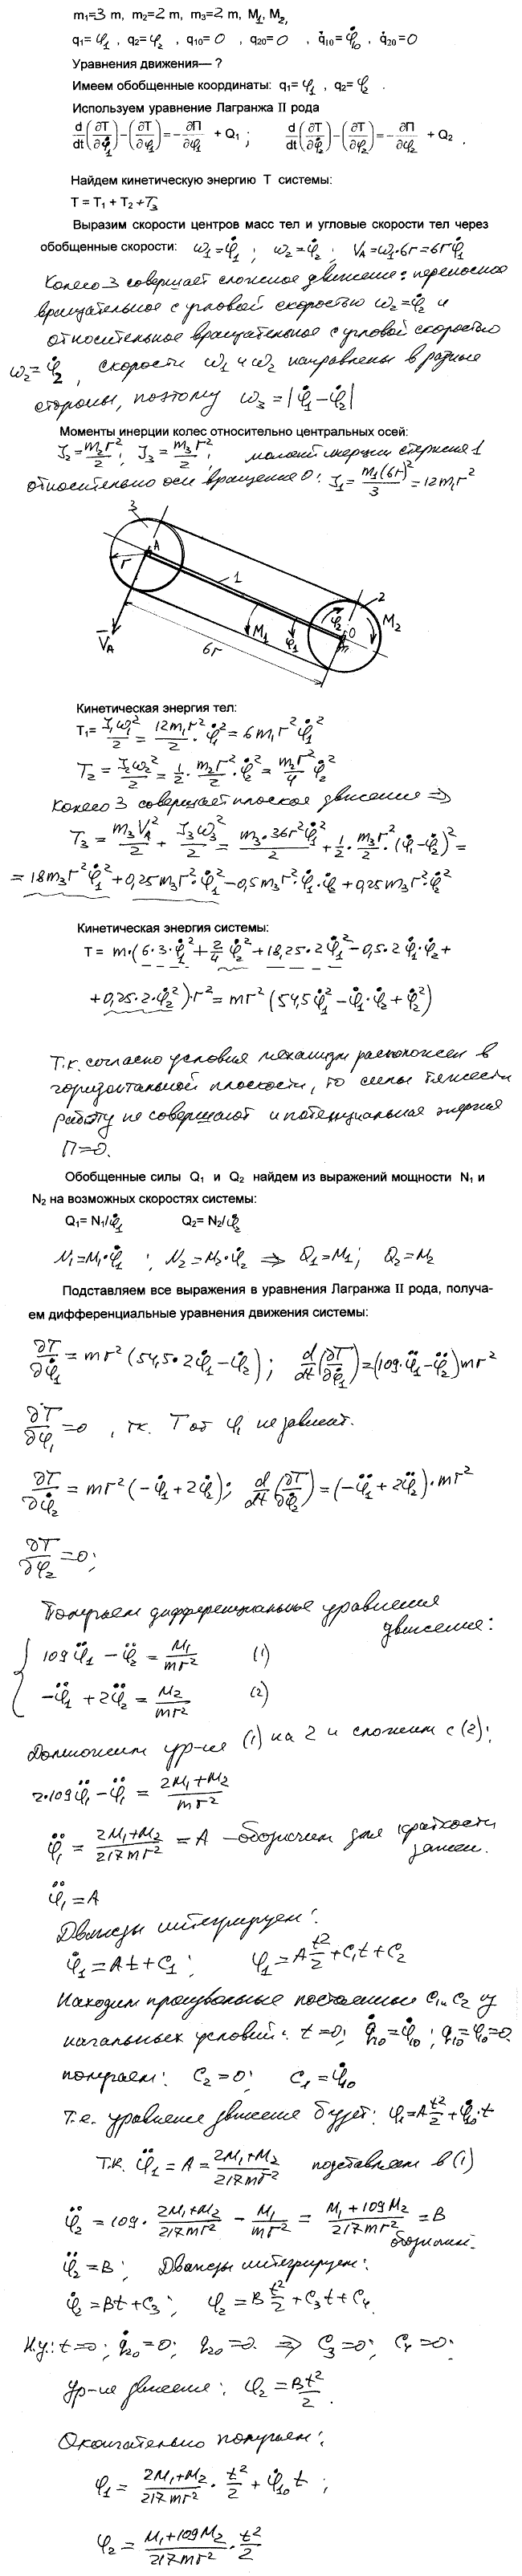 m₁=3 m, m₂=2 m, m₃=2 m, M₁, M₂,
q₁= φ₁ , q₂= φ₂ , q₁₀= 0 , q₂₀= 0 , q̇₁₀= φ̇₁₀ , q̇₂₀= 0
Уравнения движения— ?
Имеем обобщенные координаты: q₁= φ₁ , q₂= φ₂ .
Используем уравнение Лагранжа II рода
d/dt(∂T/∂φ̇₁)−(∂T/∂φ₁)=−∂П/∂φ₁ + Q₁ ; d/dt(∂T/∂φ̇₂)−(∂T/∂φ₂)=−∂П/∂φ₂ + Q₂ ,
Найдем кинетическую энергию T системы:
T = T₁ + T₂ + T₃
Выразим скорости центров масс тел и угловые скорости тел через
обобщенные скорости: ω₁=φ̇₁ ; ω₂=φ̇₂ ; V_A=ω₁·6r=6rφ̇₁
Колесо 3 совершает сложное движение: переносное
вращательное с угловой скоростью ω₂=φ̇₂ и
относительное вращательное с угловой скоростью
ω₂=φ̇₂, скорости ω₁ и ω₂ направлены в разные
стороны, поэтому ω₃=|φ̇₁−φ̇₂|
Моменты инерции колес относительно центральных осей:
J₂=m₂r²/2; J₃=m₃r²/2; момент инерции стержня 1
относительно оси вращения O: J₁=m₁(6r)²/3=12m₁r²
3
A
r
1
2
φ̇₂
O
M₂
V̄_A
M₁
φ̇₁
6r
Кинетическая энергия тел:
T₁=J₁ω₁²/2=12m₁r²/2·φ̇₁²=6m₁r²φ̇₁²
T₂=J₂ω₂²/2=1/2·m₂r²/2·φ̇₂²=m₂r²/4 φ̇₂²
Колесо 3 совершает плоское движение ⇒
T₃=m₃V_A²/2+J₃ω₃²/2=m₃·36r²φ̇₁²/2+1/2·m₃r²/2·(φ̇₁−φ̇₂)²=
=18m₃r²φ̇₁²+0,25m₃r²·φ̇₁²−0,5m₃r²·φ̇₁·φ̇₂+0,25m₃r²·φ̇₂²
Кинетическая энергия системы:
T= m·(6·3·φ̇₁²+2/4 φ̇₂²+18,25·2φ̇₁²−0,5·2φ̇₁·φ̇₂+
+0,25·2·φ̇₂²)·r²=mr²(54,5φ̇₁²−φ̇₁·φ̇₂+φ̇₂²)
Т.к. согласно условия механизм расположен в
горизонтальной плоскости, то силы тяжести
работу не совершают и потенциальная энергия
П=0.
Обобщенные силы Q₁ и Q₂ найдем из выражений мощности N₁ и
N₂ на возможных скоростях системы:
Q₁= N₁/φ̇₁ Q₂= N₂/φ̇₂
N₁=M₁·φ̇₁ ; N₂=M₂·φ̇₂ ⇒ Q₁=M₁; Q₂=M₂
Подставляем все выражения в уравнения Лагранжа II рода, получа-
ем дифференциальные уравнения движения системы:
∂T/∂φ̇₁=mr²(54,5·2φ̇₁−φ̇₂); d/dt(∂T/∂φ̇₁)=(109·φ̈₁−φ̈₂)mr²
∂T/∂φ₁=0 , т.к. T от φ₁ не зависит.
∂T/∂φ̇₂=mr²(−φ̇₁+2φ̇₂); d/dt(∂T/∂φ̇₂)=(−φ̈₁+2φ̈₂)·mr²
∂T/∂φ₂=0;
Получаем дифференциальные уравнения
движения:
109φ̈₁−φ̈₂=M₁/mr² (1)
−φ̈₁+2φ̈₂=M₂/mr² (2)
Домножим ур-ие (1) на 2 и сложим с (2):
2·109φ̈₁−φ̈₁=2M₁+M₂/mr²
φ̈₁=2M₁+M₂/217mr²=A −обозначим для краткости
записи.
φ̈₁=A
Дважды интегрируем:
φ̇₁=At+C₁; φ₁=At²/2+C₁t+C₂
Находим произвольные постоянные C₁ и C₂ из
начальных условий: t=0; q̇₁₀=φ̇₁₀; q₁₀=φ₀=0.
получаем: C₂=0; C₁=φ̇₁₀
Т.е. уравнение движения будет: φ₁=At²/2+φ̇₁₀·t
Т.к. φ̈₁=A=2M₁+M₂/217mr² подставляем в (1)
φ̈₂=109·2M₁+M₂/217mr²−M₁/mr²=M₁+109M₂/217mr²=B
обозначим.
φ̈₂=B; Дважды интегрируем:
φ̇₂=Bt+C₃; φ₂=Bt²/2+C₃t+C₄
Н.у: t=0; q̇₂₀=0; q₂₀=0. ⇒ C₃=0; C₄=0;
Ур-ие движения: φ₂=Bt²/2.
Окончательно получаем:
φ₁=2M₁+M₂/217mr²·t²/2+φ̇₁₀t ;
φ₂=M₁+109M₂/217mr²·t²/2